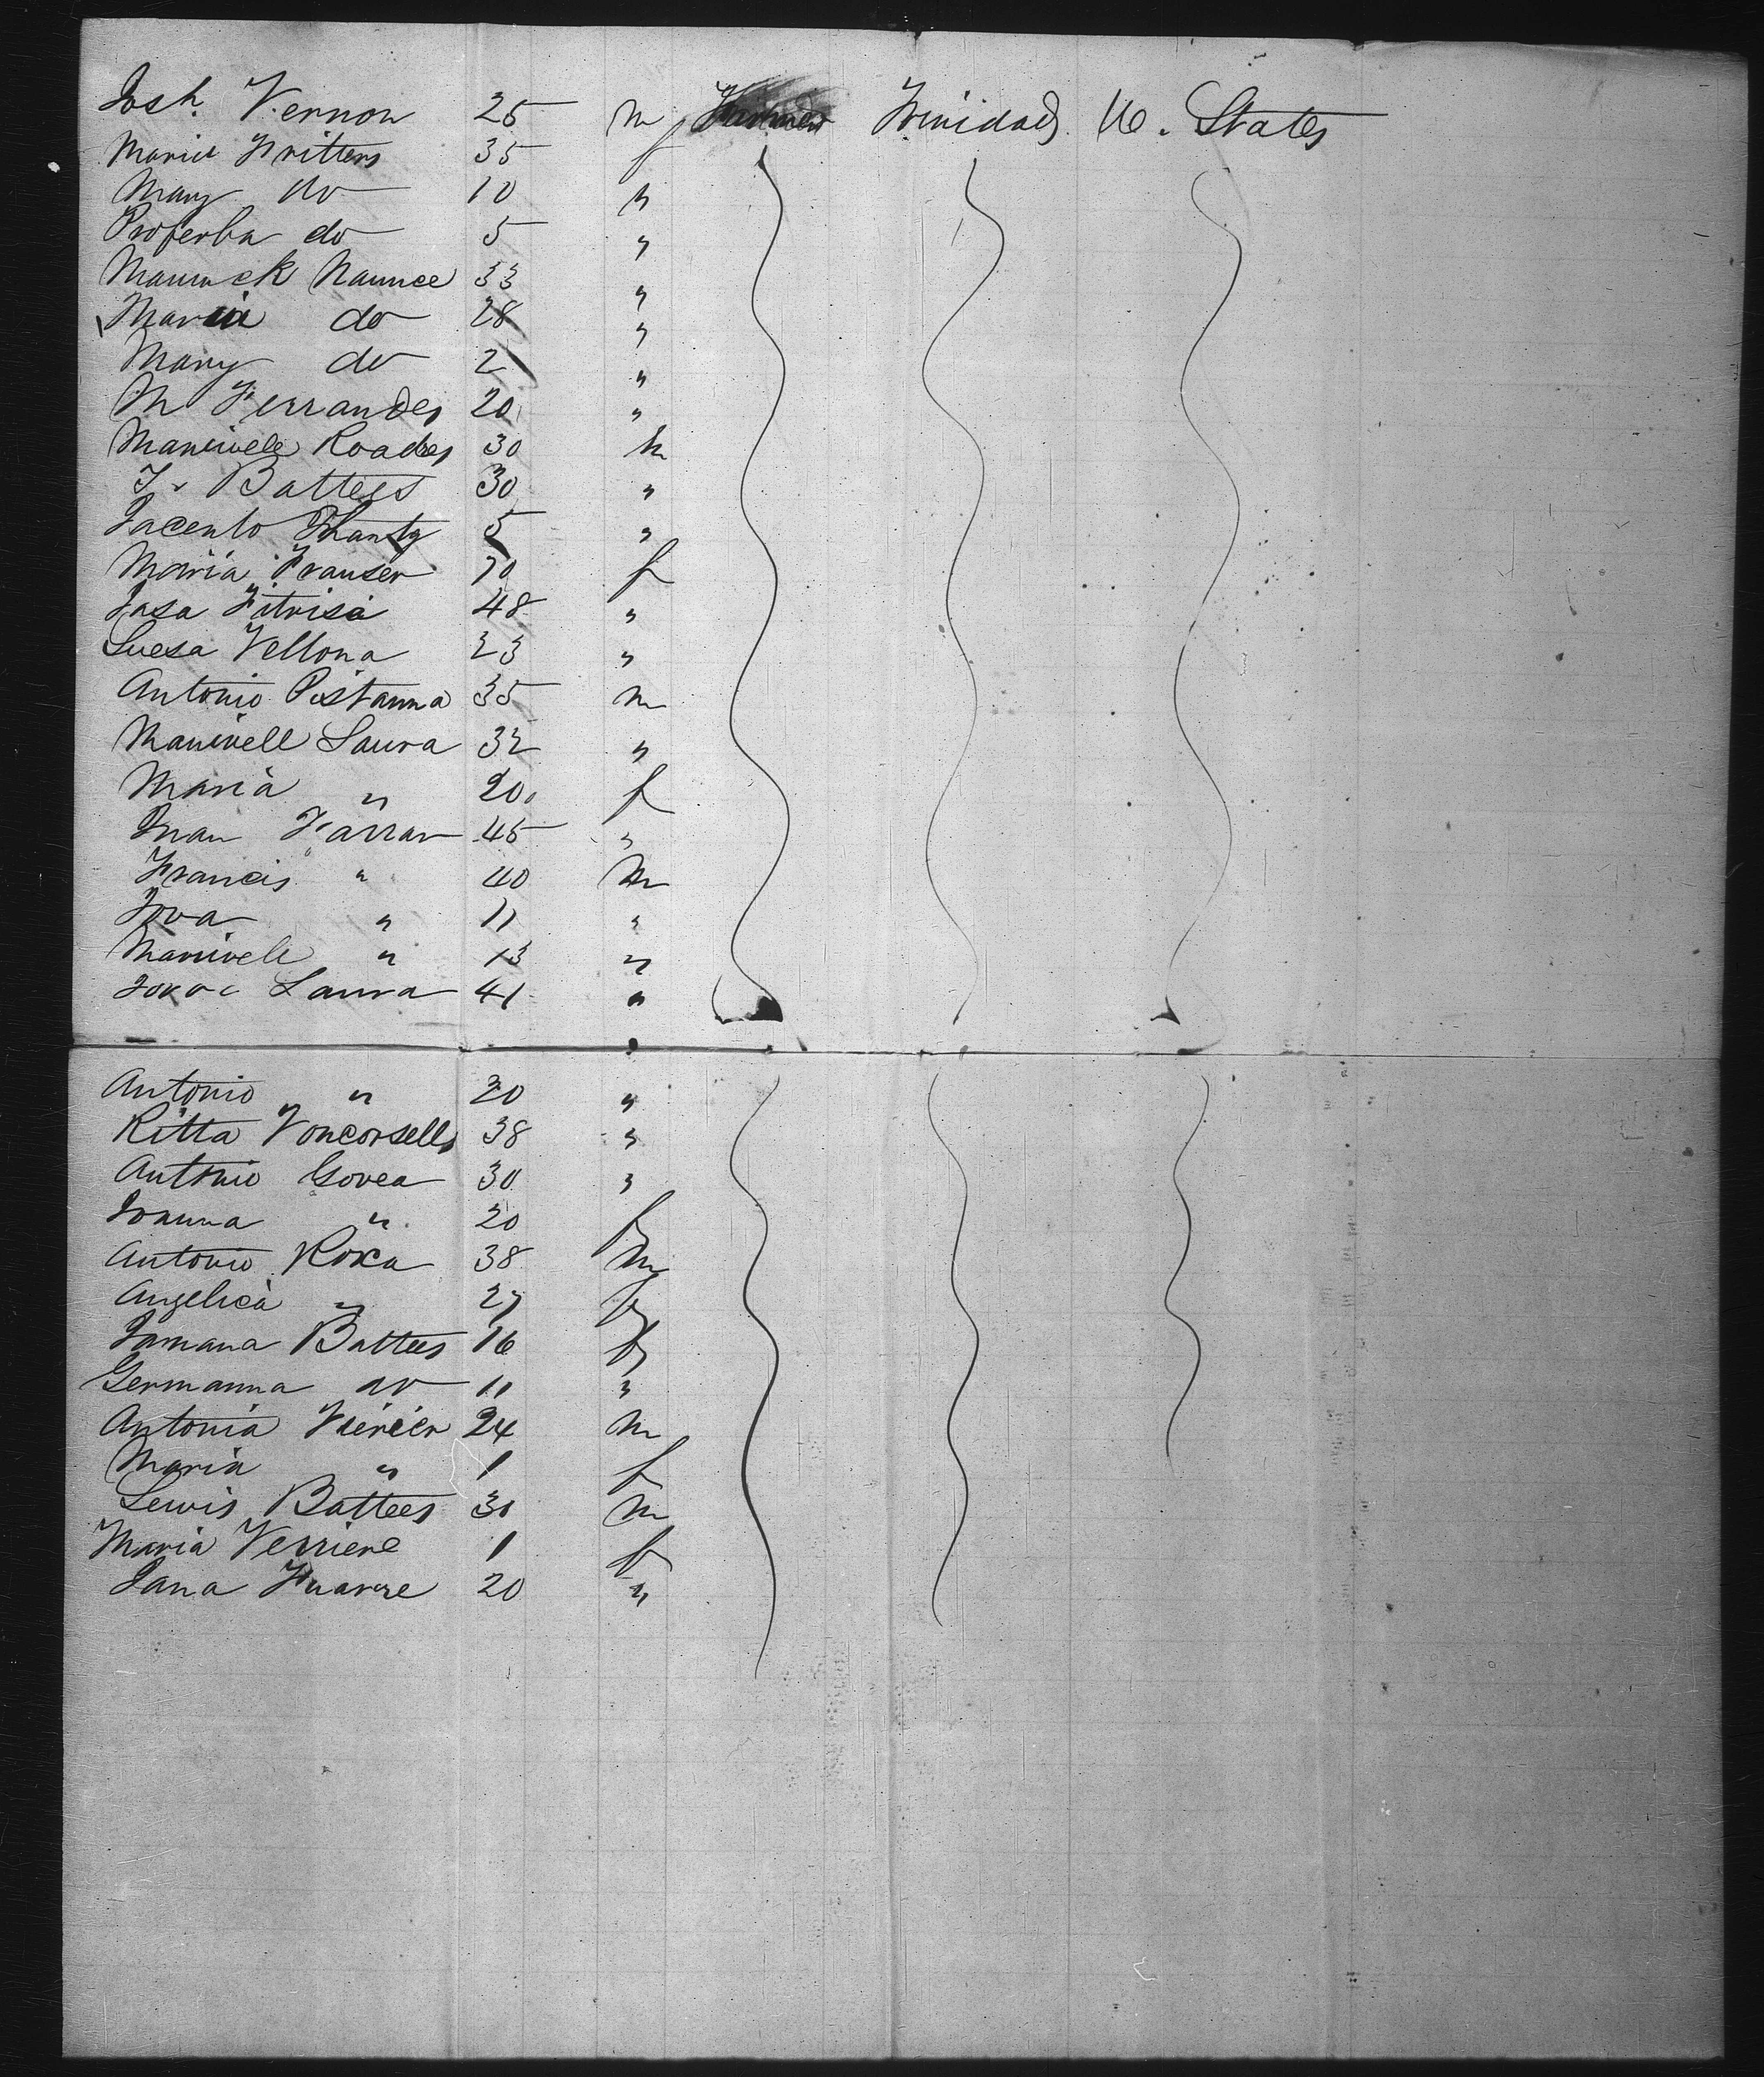 Josh. Vernon 25 m Trinidad U. States
Maria Fritters 35 f
Mary do 10 "
Proferba do 5 "
Naunce 33 "
Maria do 28 "
Mary do 2 "
M Ferrandes 20 "
Maniwele Roades 30 m
J. Battees 30 "
Jacento 5 "
Maria Franser 70 f
Jasa Fitrisa 48 "
Luesa Vellona 23 "
Antonio Pestanna 35 m
Maniwell Laura 32 "
Maria " 20 f
Farrar 45 "
Francis " 40 m
Jova " 11 "
Maniwele " 13 "
Laura 41 "
Antonio " 20 "
Ritta Voncorsells 38 "
Antonio Govea 30 "
Joanna " 20 f
Antonio Roka 38 m
Angelica " 27 f
Jamana Battees 16 f
Germanna do 11 "
Antonia 24 m
Maria " 1 f
Lewis Battees 30 m
Maria Verriere 1 f
Jana 20 "